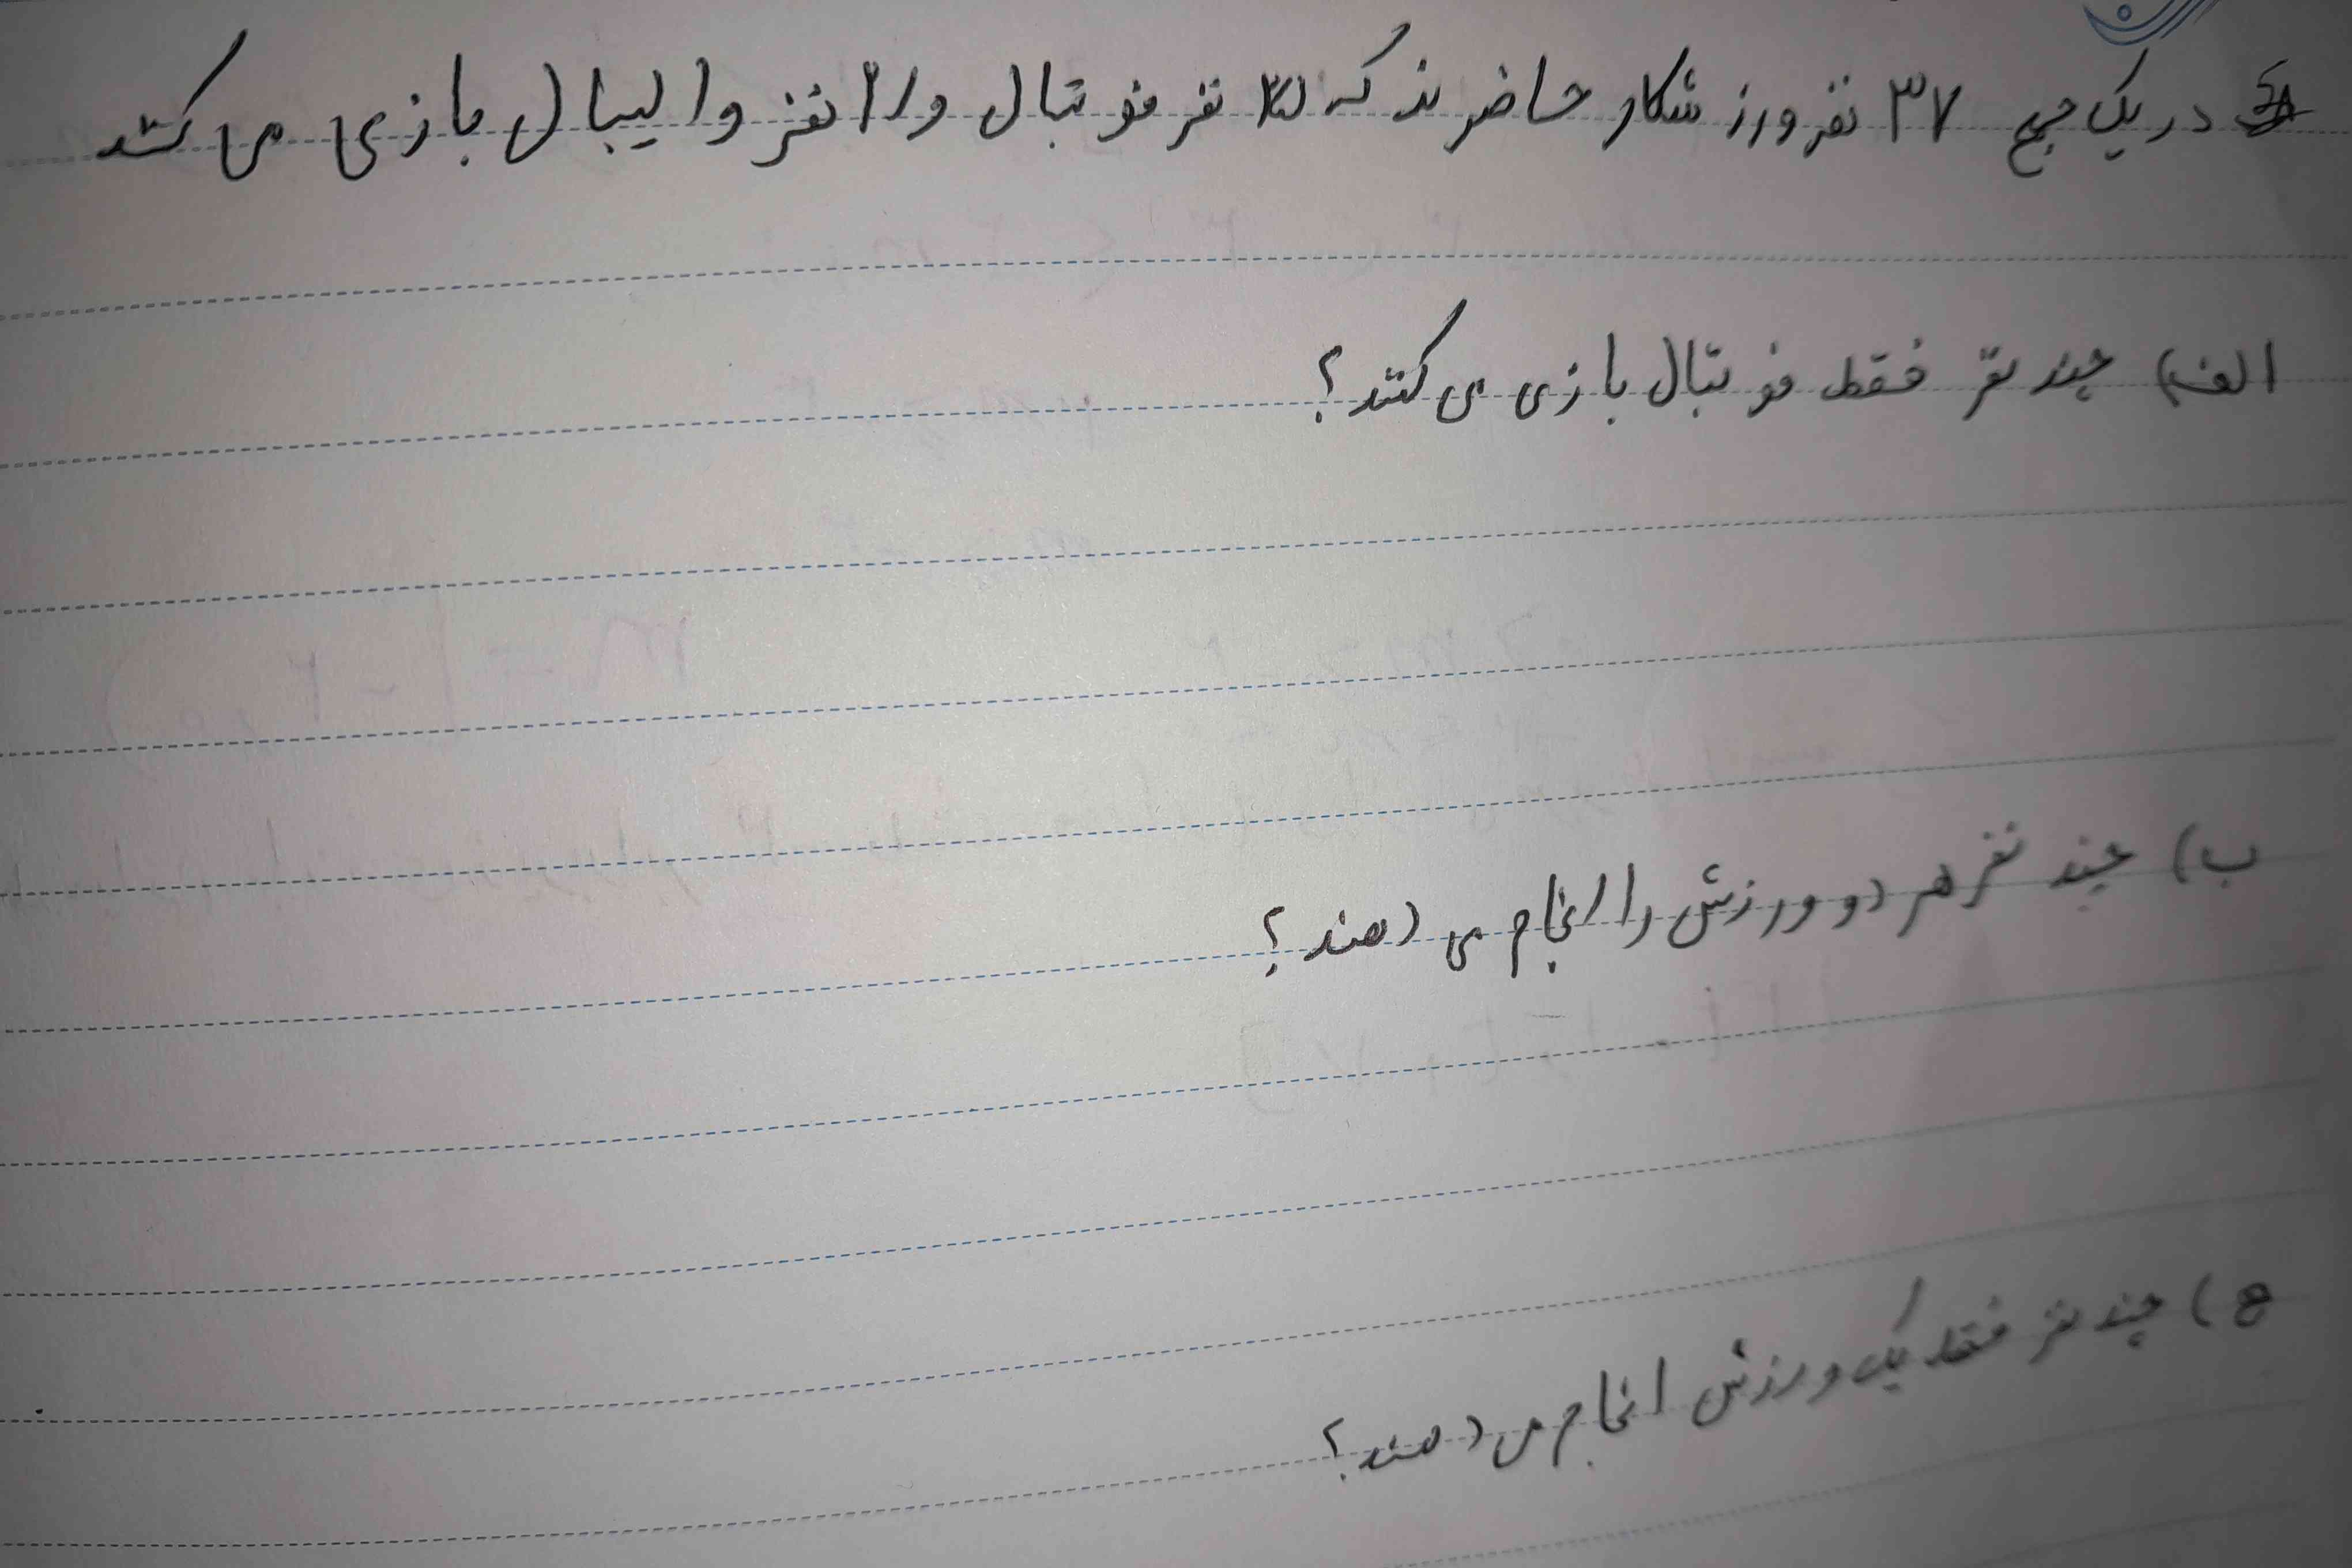 در یک جمع ۳۷ نفر ورزشکار حاضرند که نفر فوتبال و نفر والیبال بازی می کنند
الف) چند نفر فقط فوتبال بازی می کنند؟
ب) چند نفر هر دو ورزش را انجام می دهند؟
ج) چند نفر فقط یک ورزش انجام می دهند؟